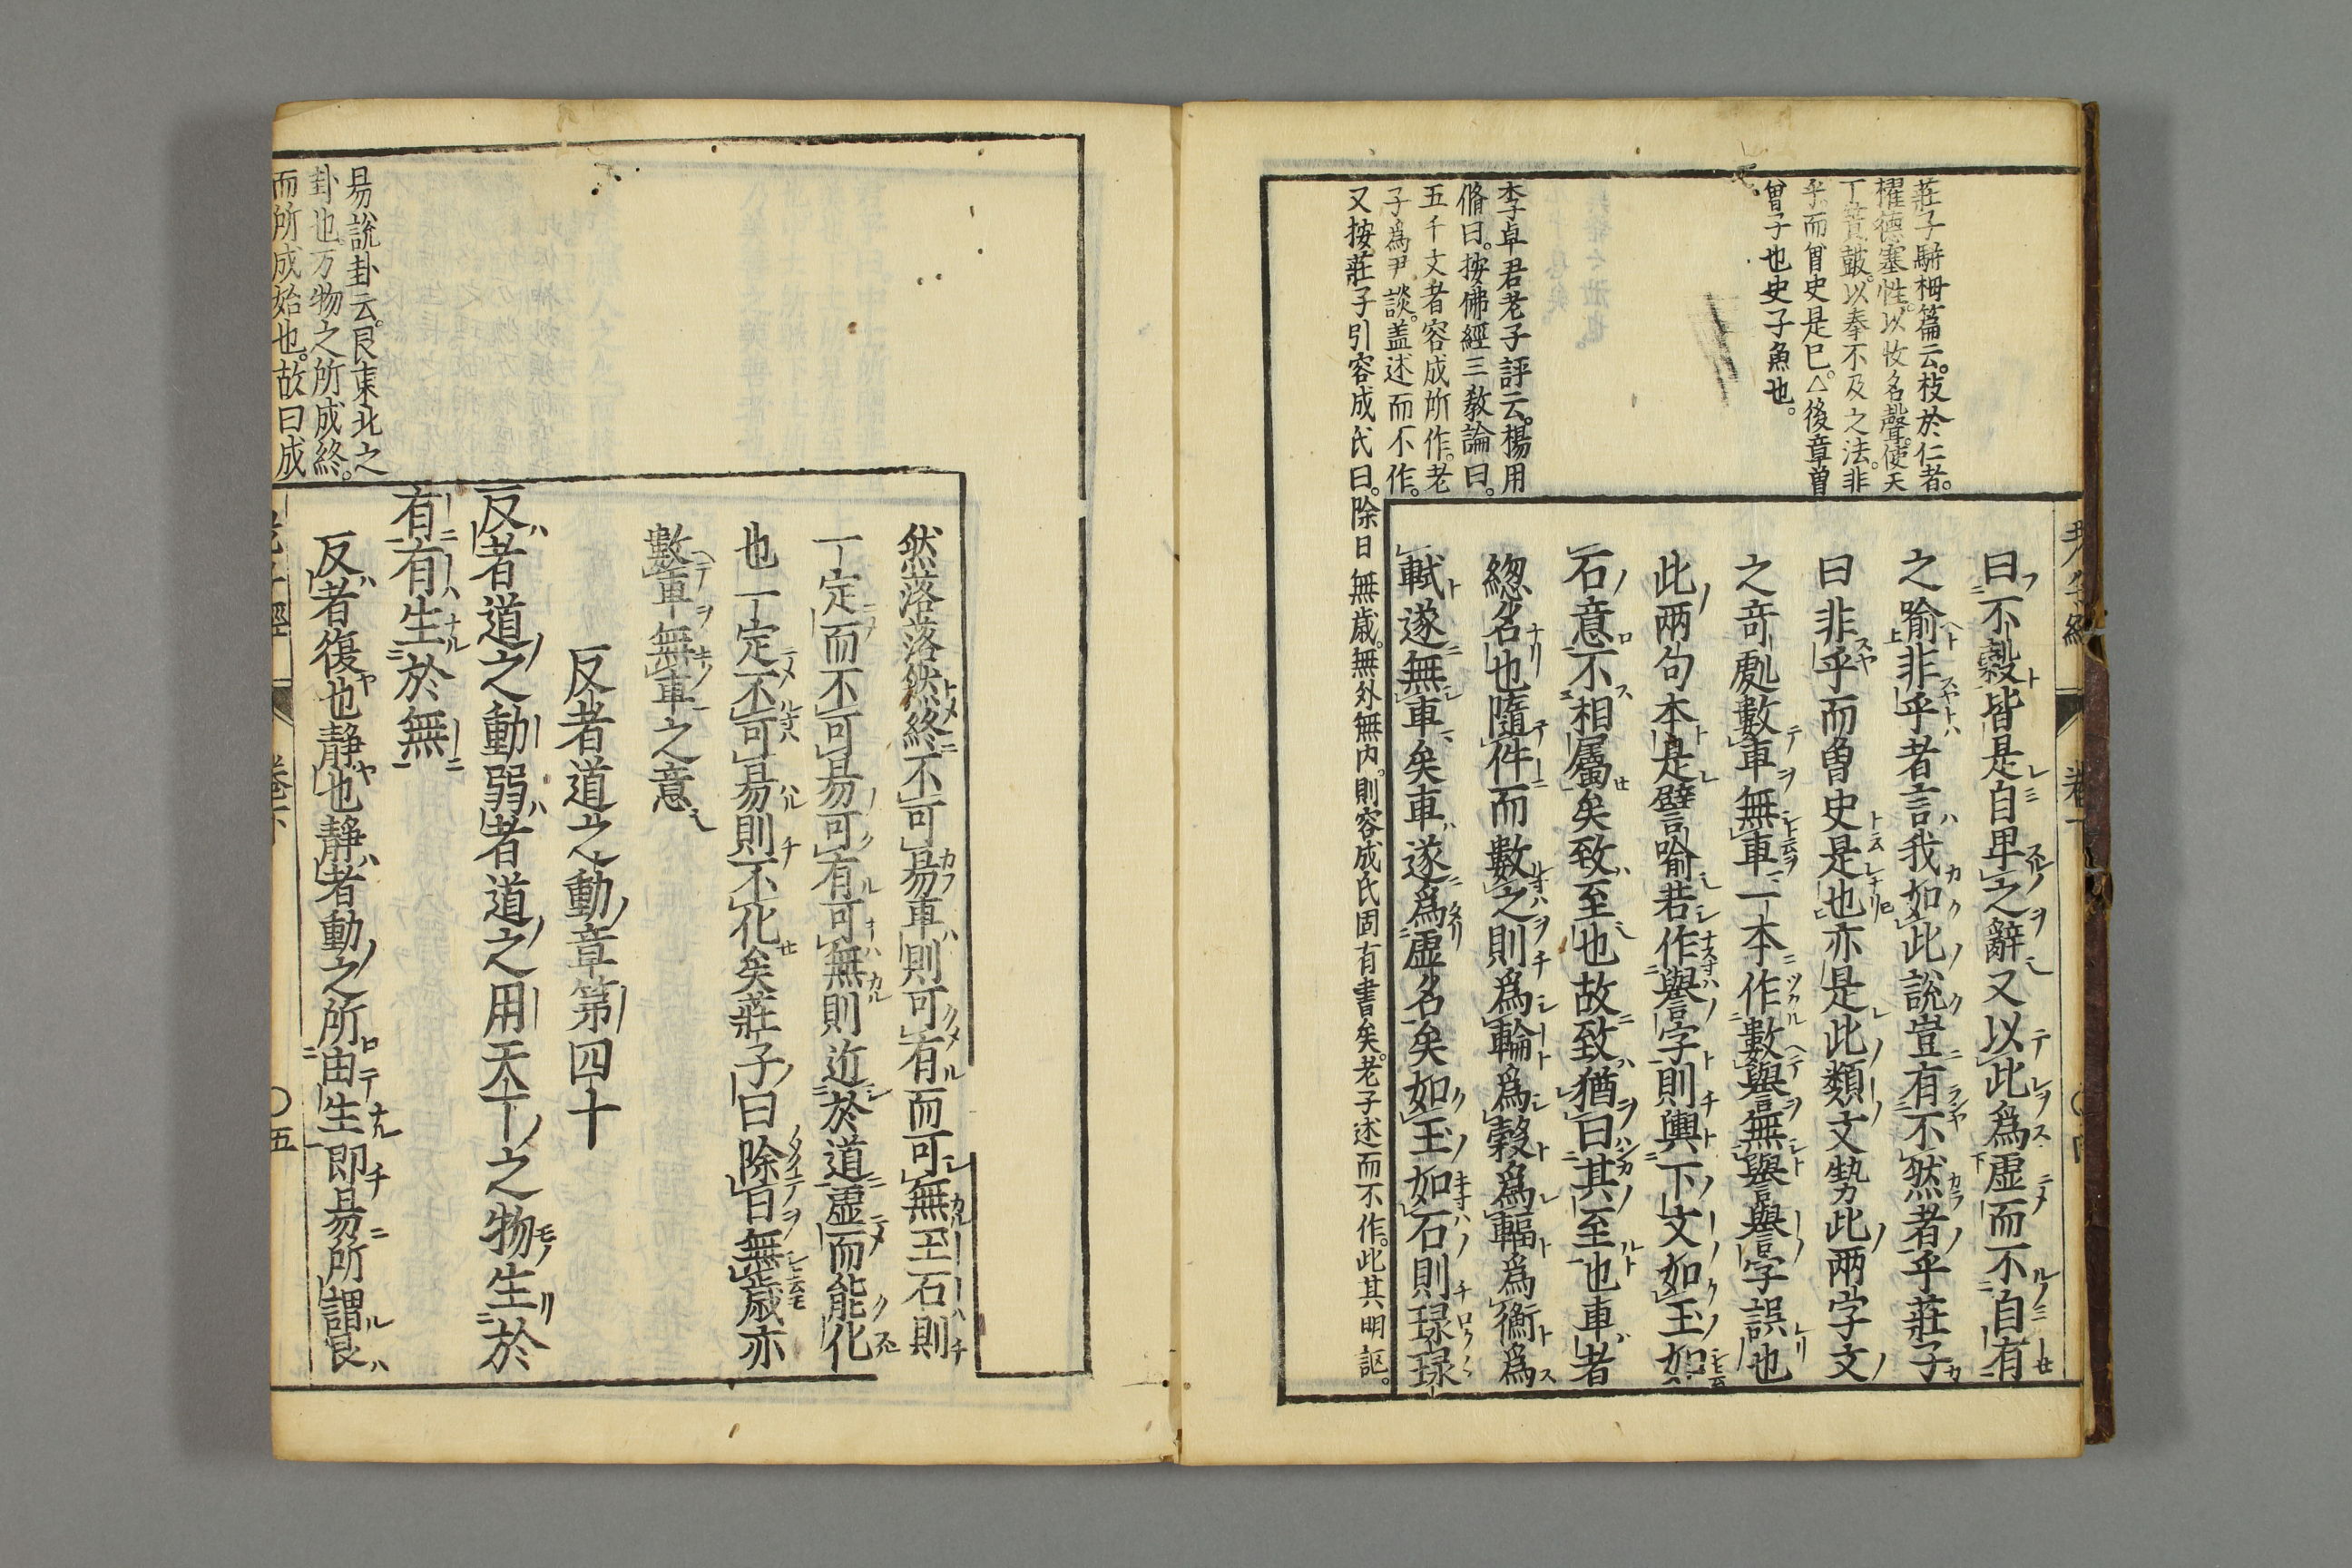 莊子駢拇篇云。枝於仁者。
擢德塞性。以收名聲。使天
丁簧鼓。以奉不及之法。非
乎而曾史是已△。後章曽
曾子也史子魚也。
李卓君老子評云。楊用
脩曰。按佛經三教論曰。
五千文者容成所作。老
子爲尹談。蓋述而不作。
又按莊子引容成氏曰。除日無歳。無外無内。則容成氏固有書矣。老子述而不作。此其明詎。
曰不穀皆是自卑之辭又以此爲虚而不自有
之喻非乎者言我如此説豈有不然者乎莊子
曰非乎而曽史是也亦是此類文勢此兩字文
之竒處數車無車一本作數譽無譽譽字誤也
此兩句本是譬喻若作譽字則與下文如玉如
石意不相屬矣致至也故致猶曰其至也車者
緫名也隨件而數之則爲輪爲轂爲輻爲衡爲
軾遂無車矣車遂爲虚名矣如玉如石則琭琭
然落落然終不可易車則可有而可無玉石則
一定而不可易可有可無則近於道虚而能化
也一定不可易則不化矣莊子曰除日無歳亦
數車無車之意
反者道之動章第四十
反者道之動弱者道之用天下之物生於
有有生於無
反者復也靜也靜者動之所由生即易所謂艮
易説卦云。艮東北之
卦也。万物之所成終。
而所成始也。故曰成
老子經
卷下
〇五